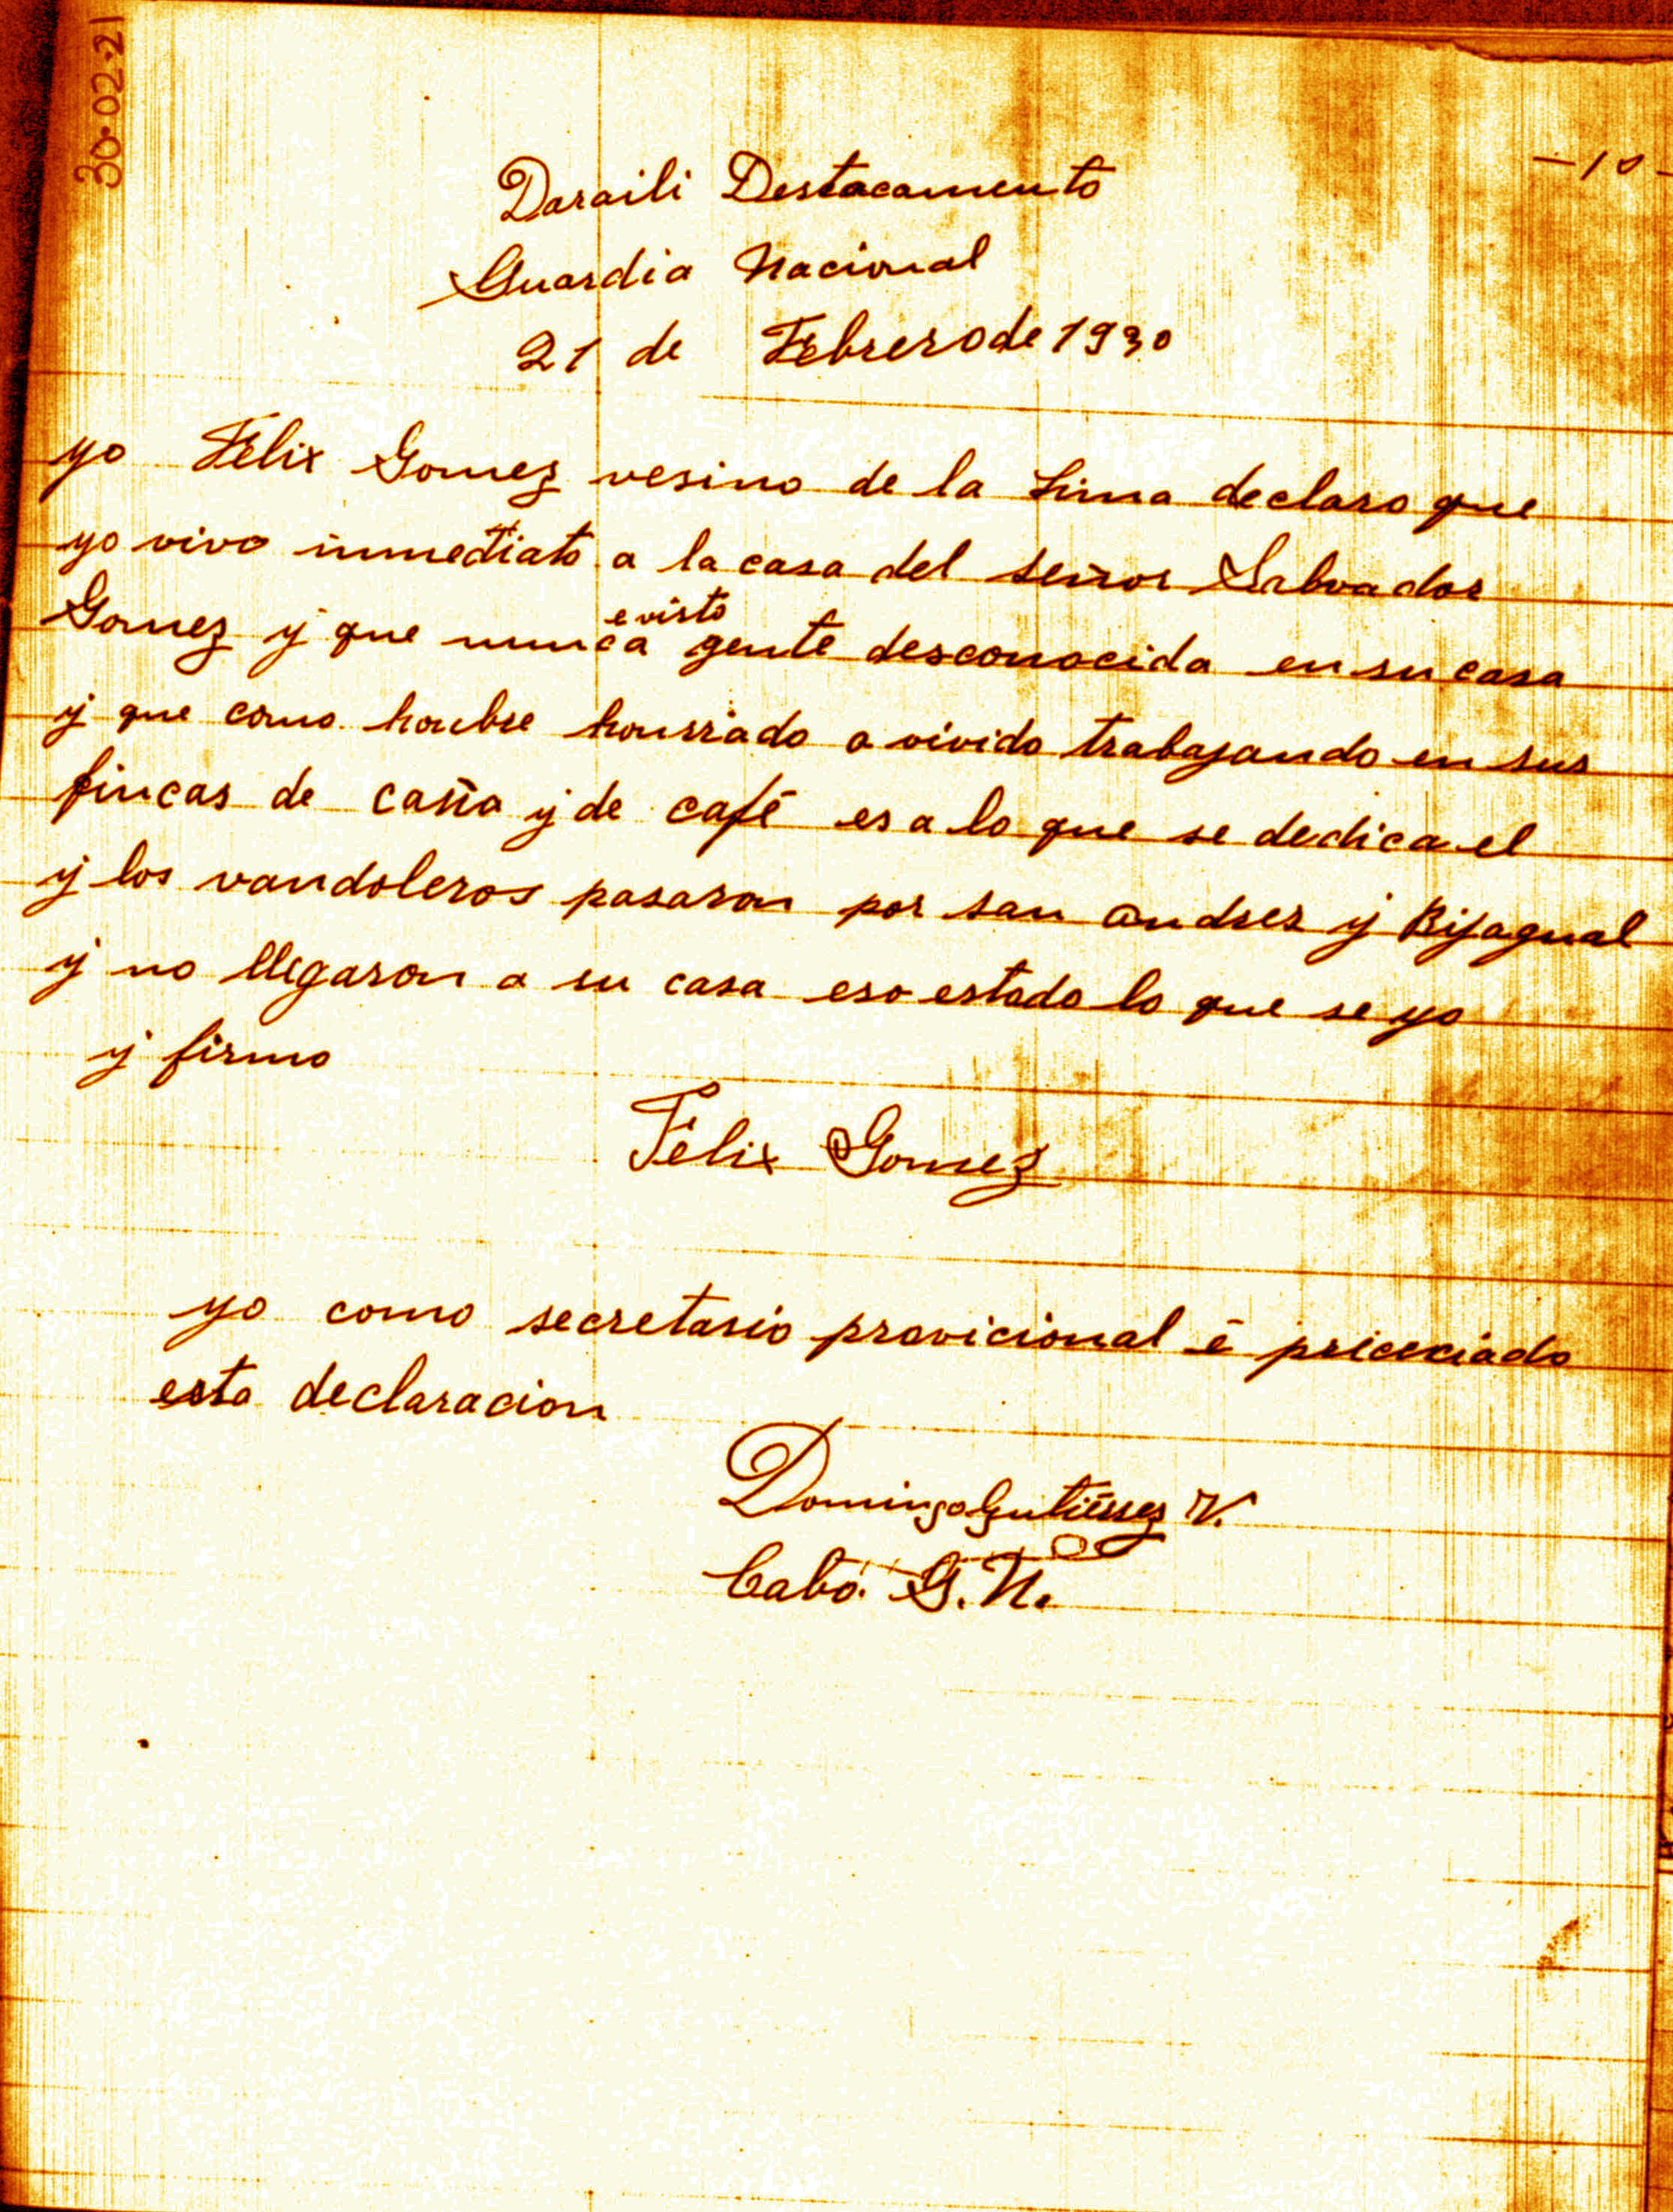 30-02-21
-10-
Daraili Destacamento
Guardia Nacional
21 de Febrero de 1930
yo Felix Gomez vesino de la Lima declaro que
yo vivo inmediato a la casa del señor Salvador
Gomez y que nunca e visto gente desconocida en su casa
y que como honbre honrrado a vivido trabajando en sus
fincas de caña y de café es a lo que se dedica el
y los vandoleros pasaron por san Andrez y Bijagual
y no llegaron a su casa eso estodo lo que se yo
y firmo
Felix Gomez
yo como secretario provicional é
esta declaracion
Domingo Gutiérrez V.
Cabo. G.N.